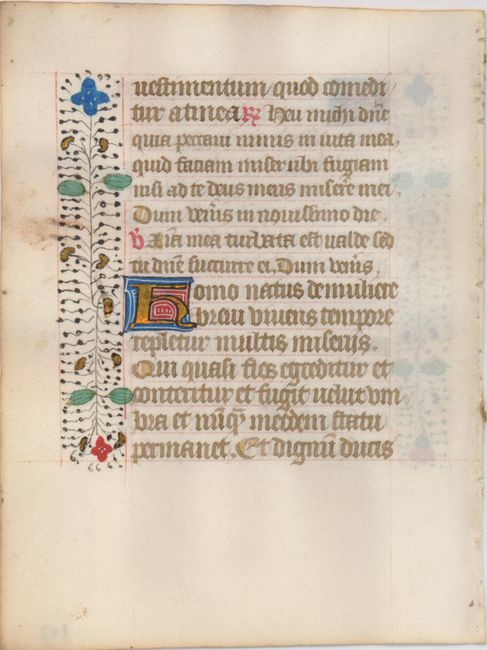 uestimentum quod comedi
tur a tinea. R Heu michi dn̄e
quia peccaui nimis in uita mea,
quid faciam miser ubi fugiam
nisi ad te deus meus miserē mei
Dum ven̄is in nouissimo die.
V Aīa mea turbata est ualde sed
tu dn̄e succurre ei. Dum ven̄is.
Homo natus de muliere
breui viuens tempore
repletur multis miseriis.
Qui quasi flos egreditur et
conteritur et fugit uelut vm
bra et nūq̄ī eodem statu
permanet. Et dignū ducis